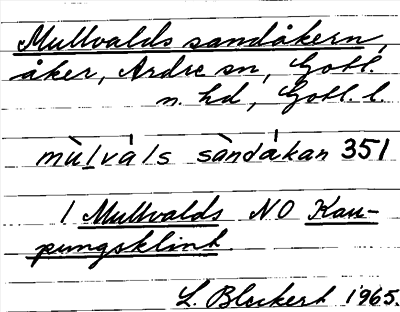 Mullvalds sandåkern,
åker, Ardre sn, Gotl.
n. hd, Gotl. l.
mùlvàls sàndåkan 351
1 Mullvalds NO Kau-
pungsklint.
L. Bleckert 1965.